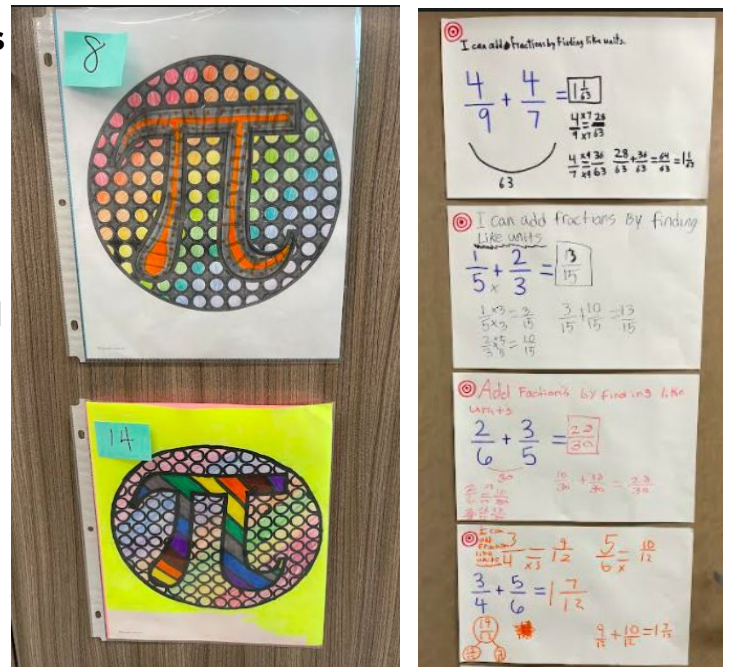 8
π
14
π
I can add fractions by finding like units.
4/9 + 4/7 = 1 1/63
4/9 ×7/×7 = 28/63
4/7 ×9/×9 = 36/63 28/63 + 36/63 = 64/63 = 1 1/63
63
I can add fractions By finding
Like units
1/5 + 2/3 = 13/15
×
1/5 ×3/×3 = 3/15 3/15 + 10/15 = 13/15
2/3 ×5/×5 = 10/15
Add Factions by finding like
units
2/6 + 3/5 = 28/30
30
10/30 + 18/30 = 28/30
I can
add
like
units
3/4 ×3 = 9/12 5/6 × = 10/12
3/4 + 5/6 = 1 7/12
19/12
9/12 + 10/12 = 1 7/12